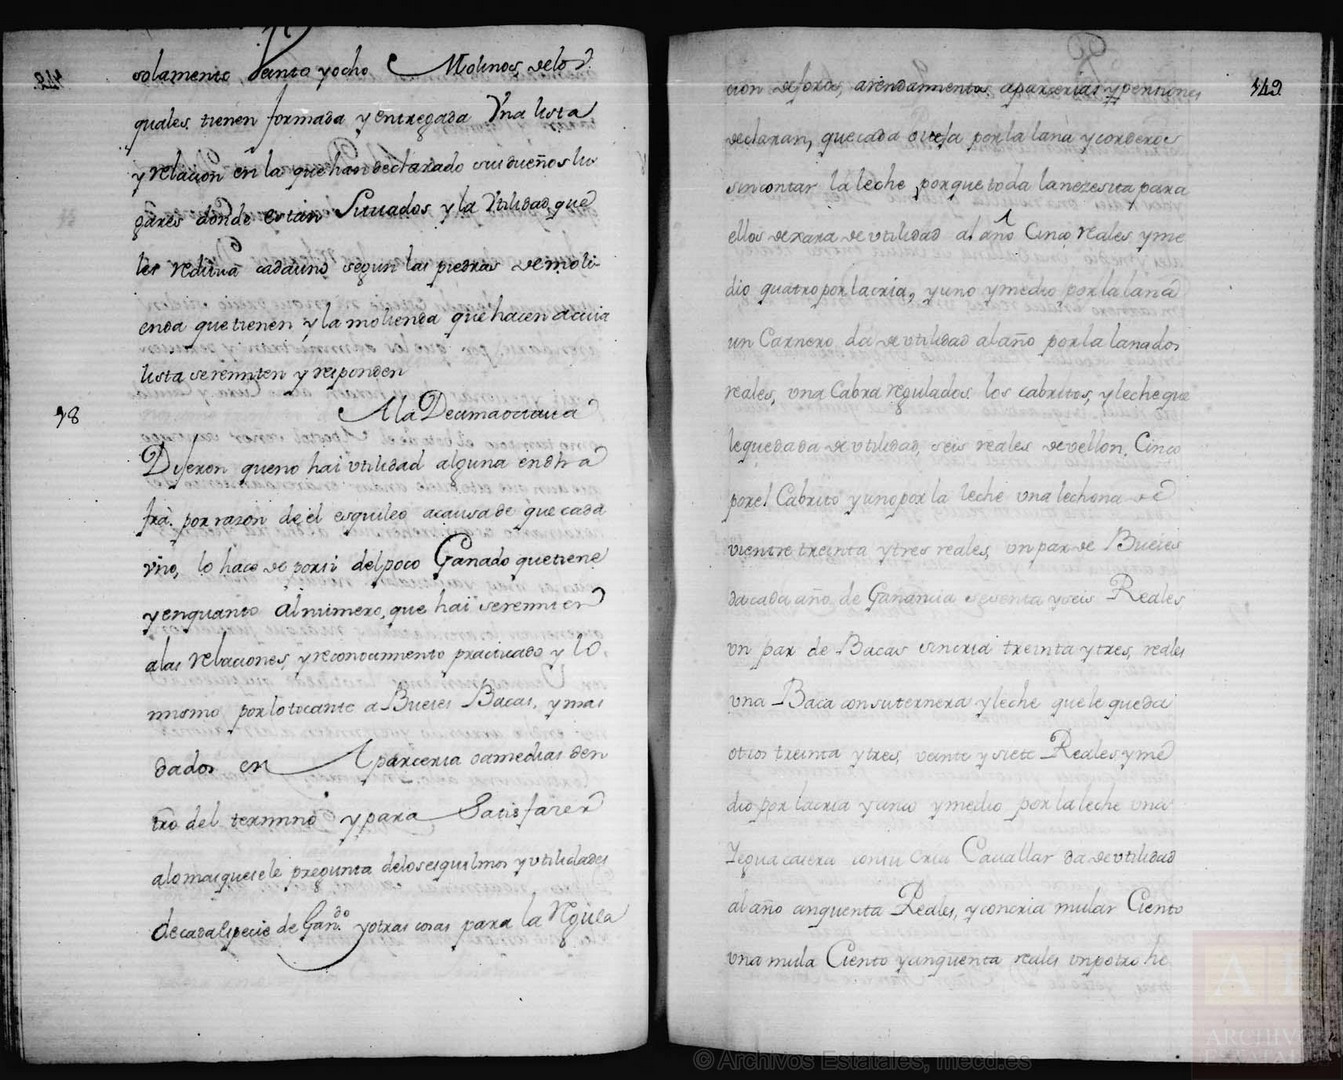 solamente Veinte y ocho Molinos de los
quales tienen formada y entregada Una lista
y relacion en la que han declarado sus dueños lu
gares donde están Situados y la Utilidad que
les reditua cada uno segun las piedras de moli
enda que tienen y la molienda que hacen a cuia
lista se remiten y responden
18 A la Decimaoctava
Dijeron que no hai utilidad alguna en dha
fra. por razon de el esquileo a causa de que cada
uno, lo hace de por si del poco Ganado que tiene
y en quanto al numero, que hai se remiten
a las relaciones, y reconocimiento practicado y lo
mismo por lo tocante a Bueies Bacas, y mas
dados en Aparceria o a medias den
tro del termino y para Satisfazer
a lo mas que se le pregunta de los esquilmos y utilidades
de cada especie de Gando. y otras cosas para la Regula
149
cion de foros, arrendamientos, aparcerias y pensiones
declaran, que cada oveja por la lana y corderos
sin contar la leche, porque toda la nezesita para
ellos dexara de utilidad al año Cinco reales y me
dio quatro por la cria, y uno y medio por la lana
un Carnero da de utilidad al año por la lana dos
reales, una Cabra regulados los cabritos, y leche que
le queda da de utilidad, seis reales de vellon, Cinco
por el Cabrito y uno por la leche una lechona de
vientre treinta y tres reales, un par de Bueies
da cada año, de Ganancia sesenta y seis Reales
un par de Bacas sin cria treinta y tres, reales
una Baca con su ternera y leche que le queda
otros treinta y tres, veinte y siete Reales y me
dio por la cria y cinco y medio por la leche una
Yegua casera con su cria Cavallar da de utilidad
al año cinquenta Reales, y con cria mular Ciento
una mula Ciento y cinquenta reales un potro he
© Archivos Estatales, mecd.es
ARCHIVOS
ESTATALES